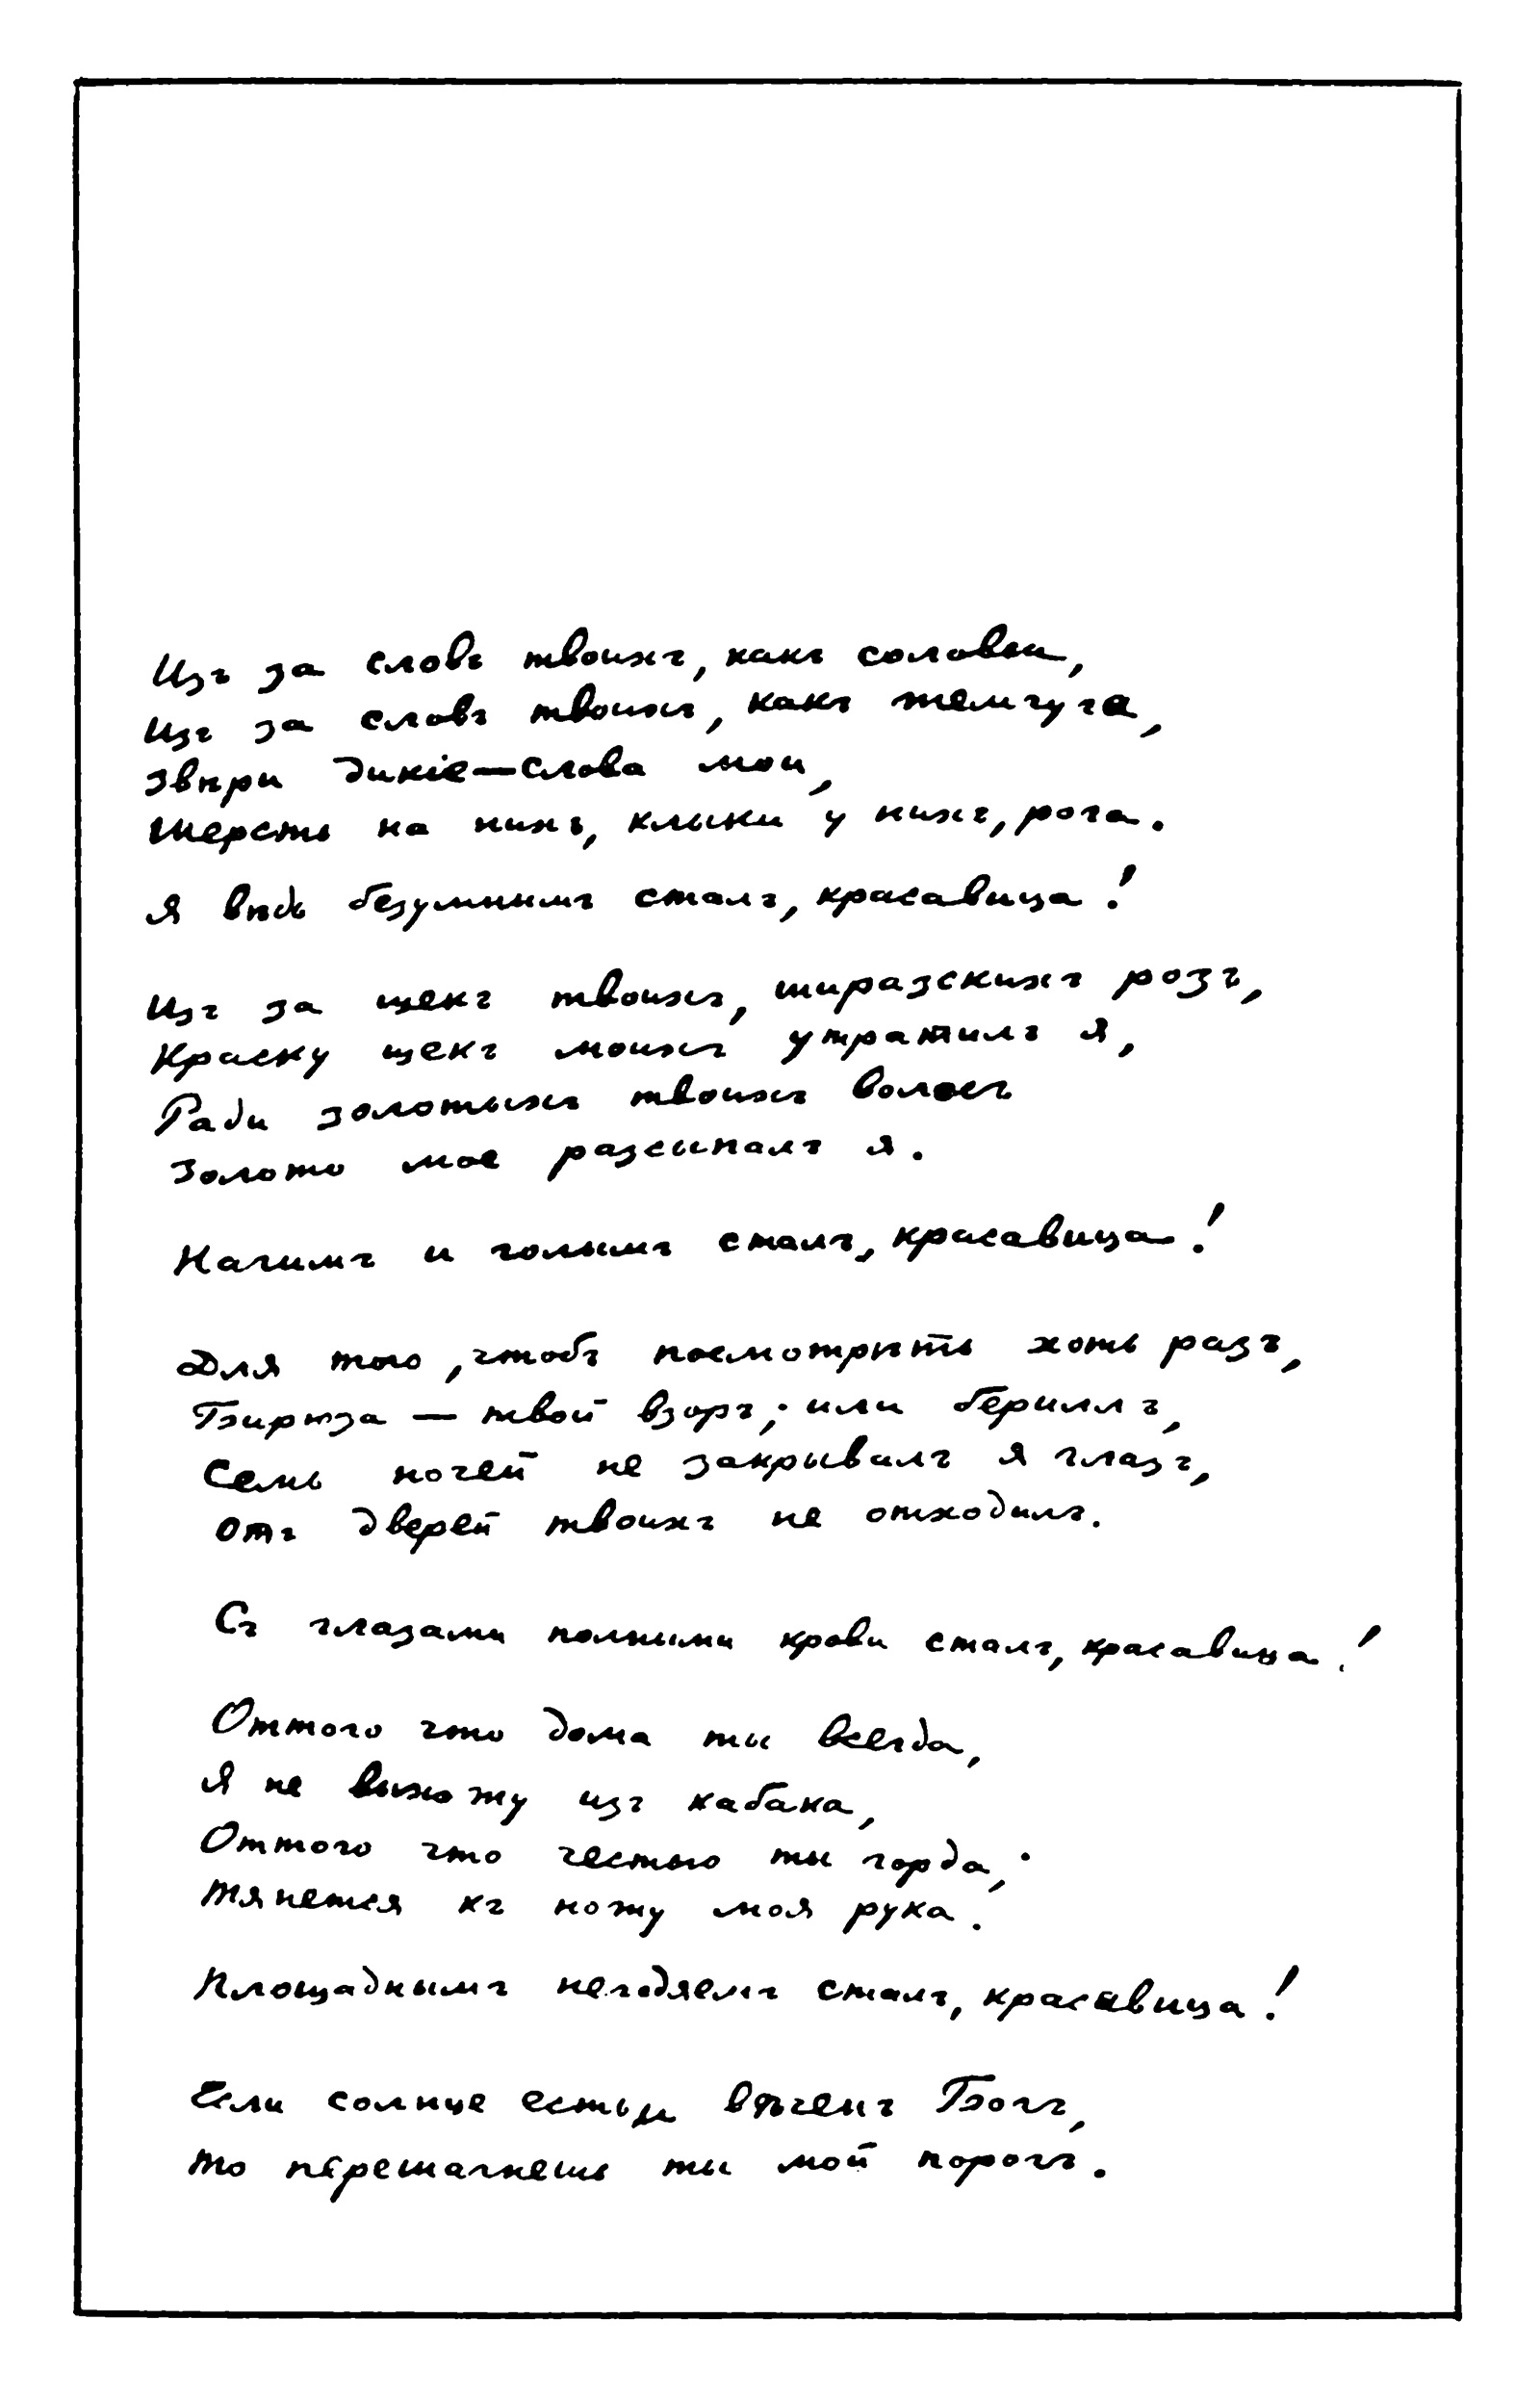 Изъ за словъ твоихъ, какъ соловьи,
Изъ за словъ твоихъ, какъ жемчуга,
Звѣри дикіе — слова мои,
Шерсть на нихъ, клыки у нихъ, рога.
Я вѣдь безумнымъ сталъ, красавица!
Изъ за щекъ твоихъ, ширазскихъ розъ,
Краску щекъ моихъ утратилъ я,
Ради золотыхъ твоихъ волосъ
Золото мое разсыпалъ я.
Нагимъ и голымъ сталъ, красавица!
Для того, чтобъ посмотрѣть хоть разъ,
Бирюза — твой взоръ, или бериллъ,
Семь ночей не закрывалъ я глазъ,
Отъ дверей твоихъ не отходилъ.
Съ глазами полными крови сталъ, красавица!
Оттого что дома ты всегда,
Я не выхожу изъ кабака,
Оттого что честью ты горда,
Тянется къ ножу моя рука.
Площаднымъ негодяемъ сталъ, красавица!
Если солнце есть и вѣченъ Богъ,
То перешагнешь ты мой порогъ.